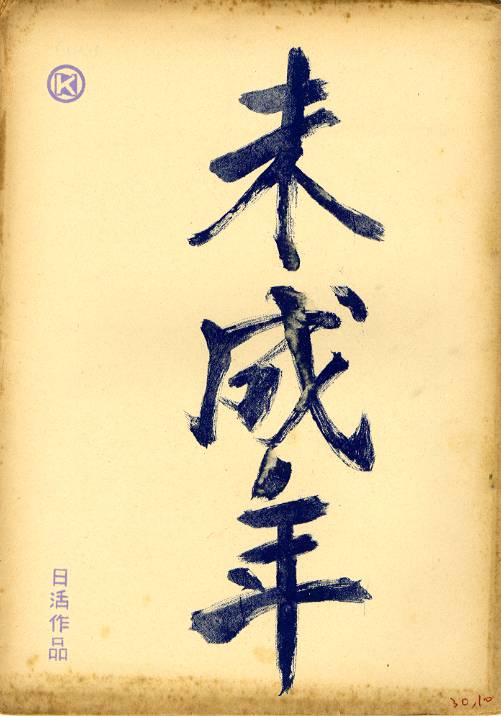 未成年
K
日活作品
30,10